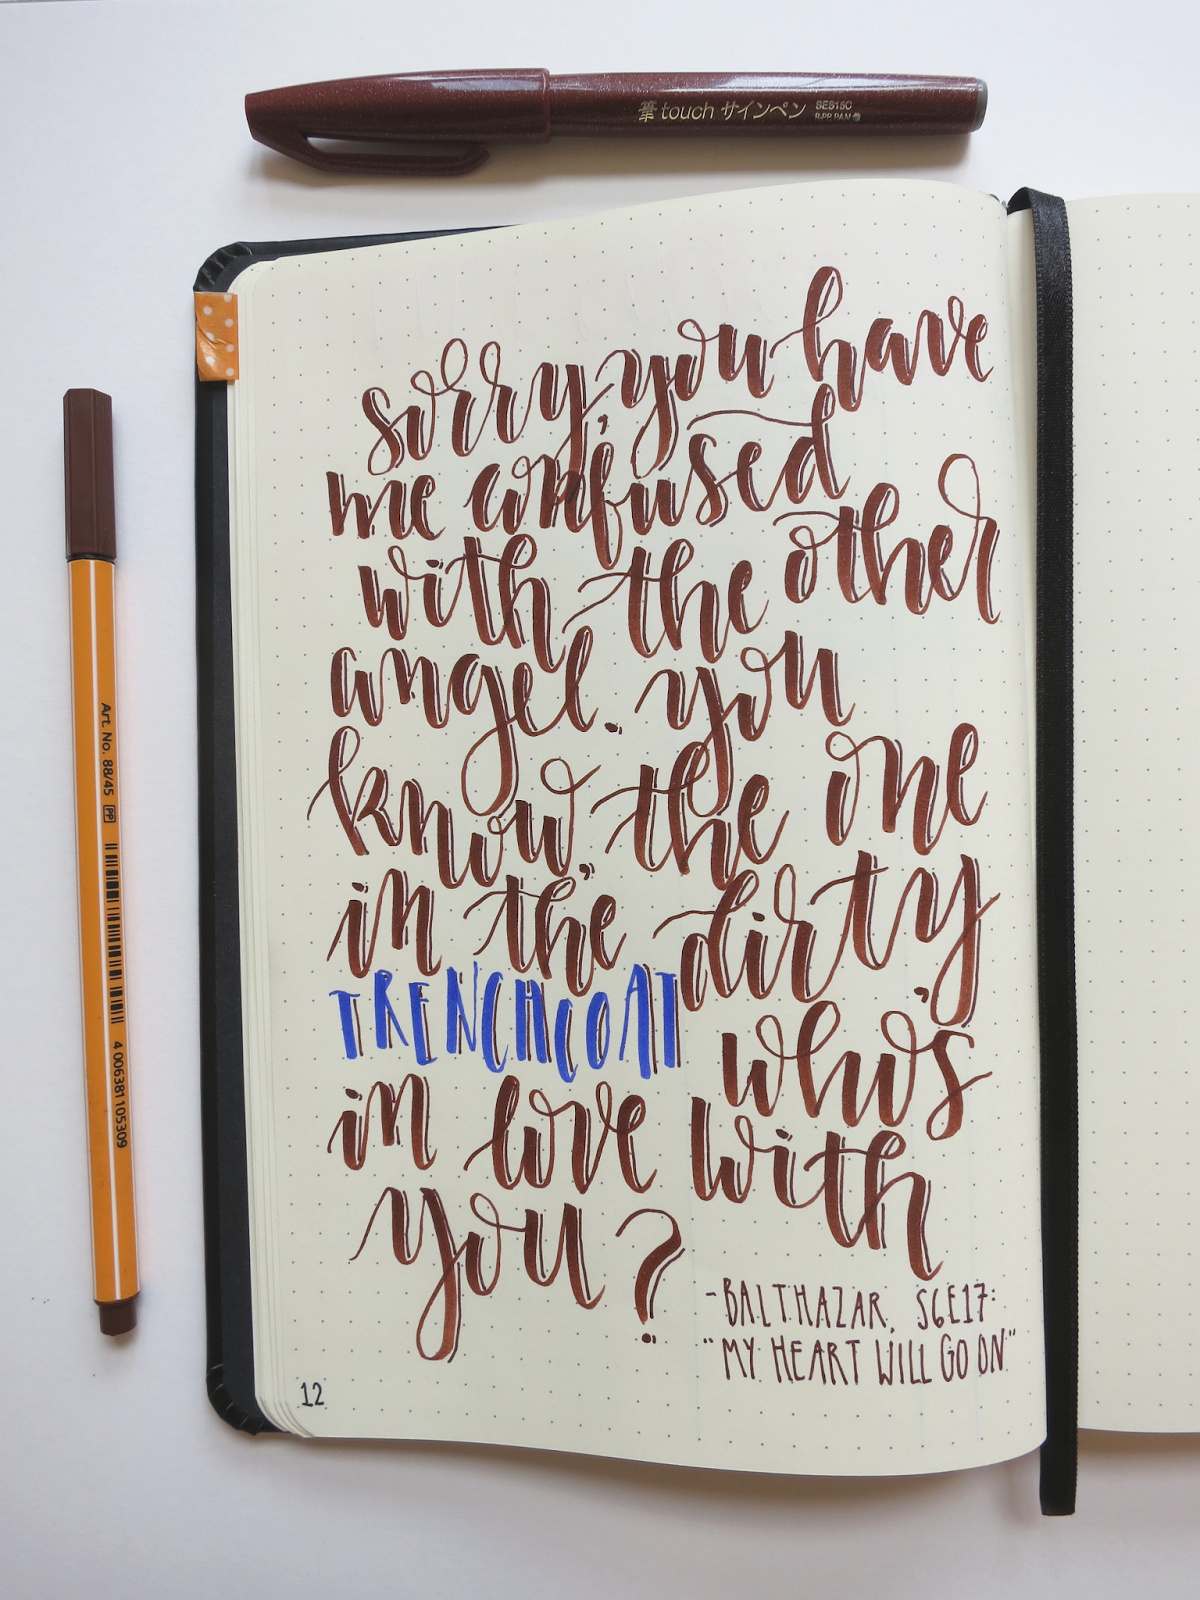 筆touch サインペン SES15C
R-PP PAN
sorry, you have
me confused
with the other
angel. you
know, the one
in the dirty
TRENCHCOAT who's
in love with
you?
-BALTHAZAR, S6E17:
"MY HEART WILL GO ON"
12
Art. No. 88/45 PP 4 006381 105309